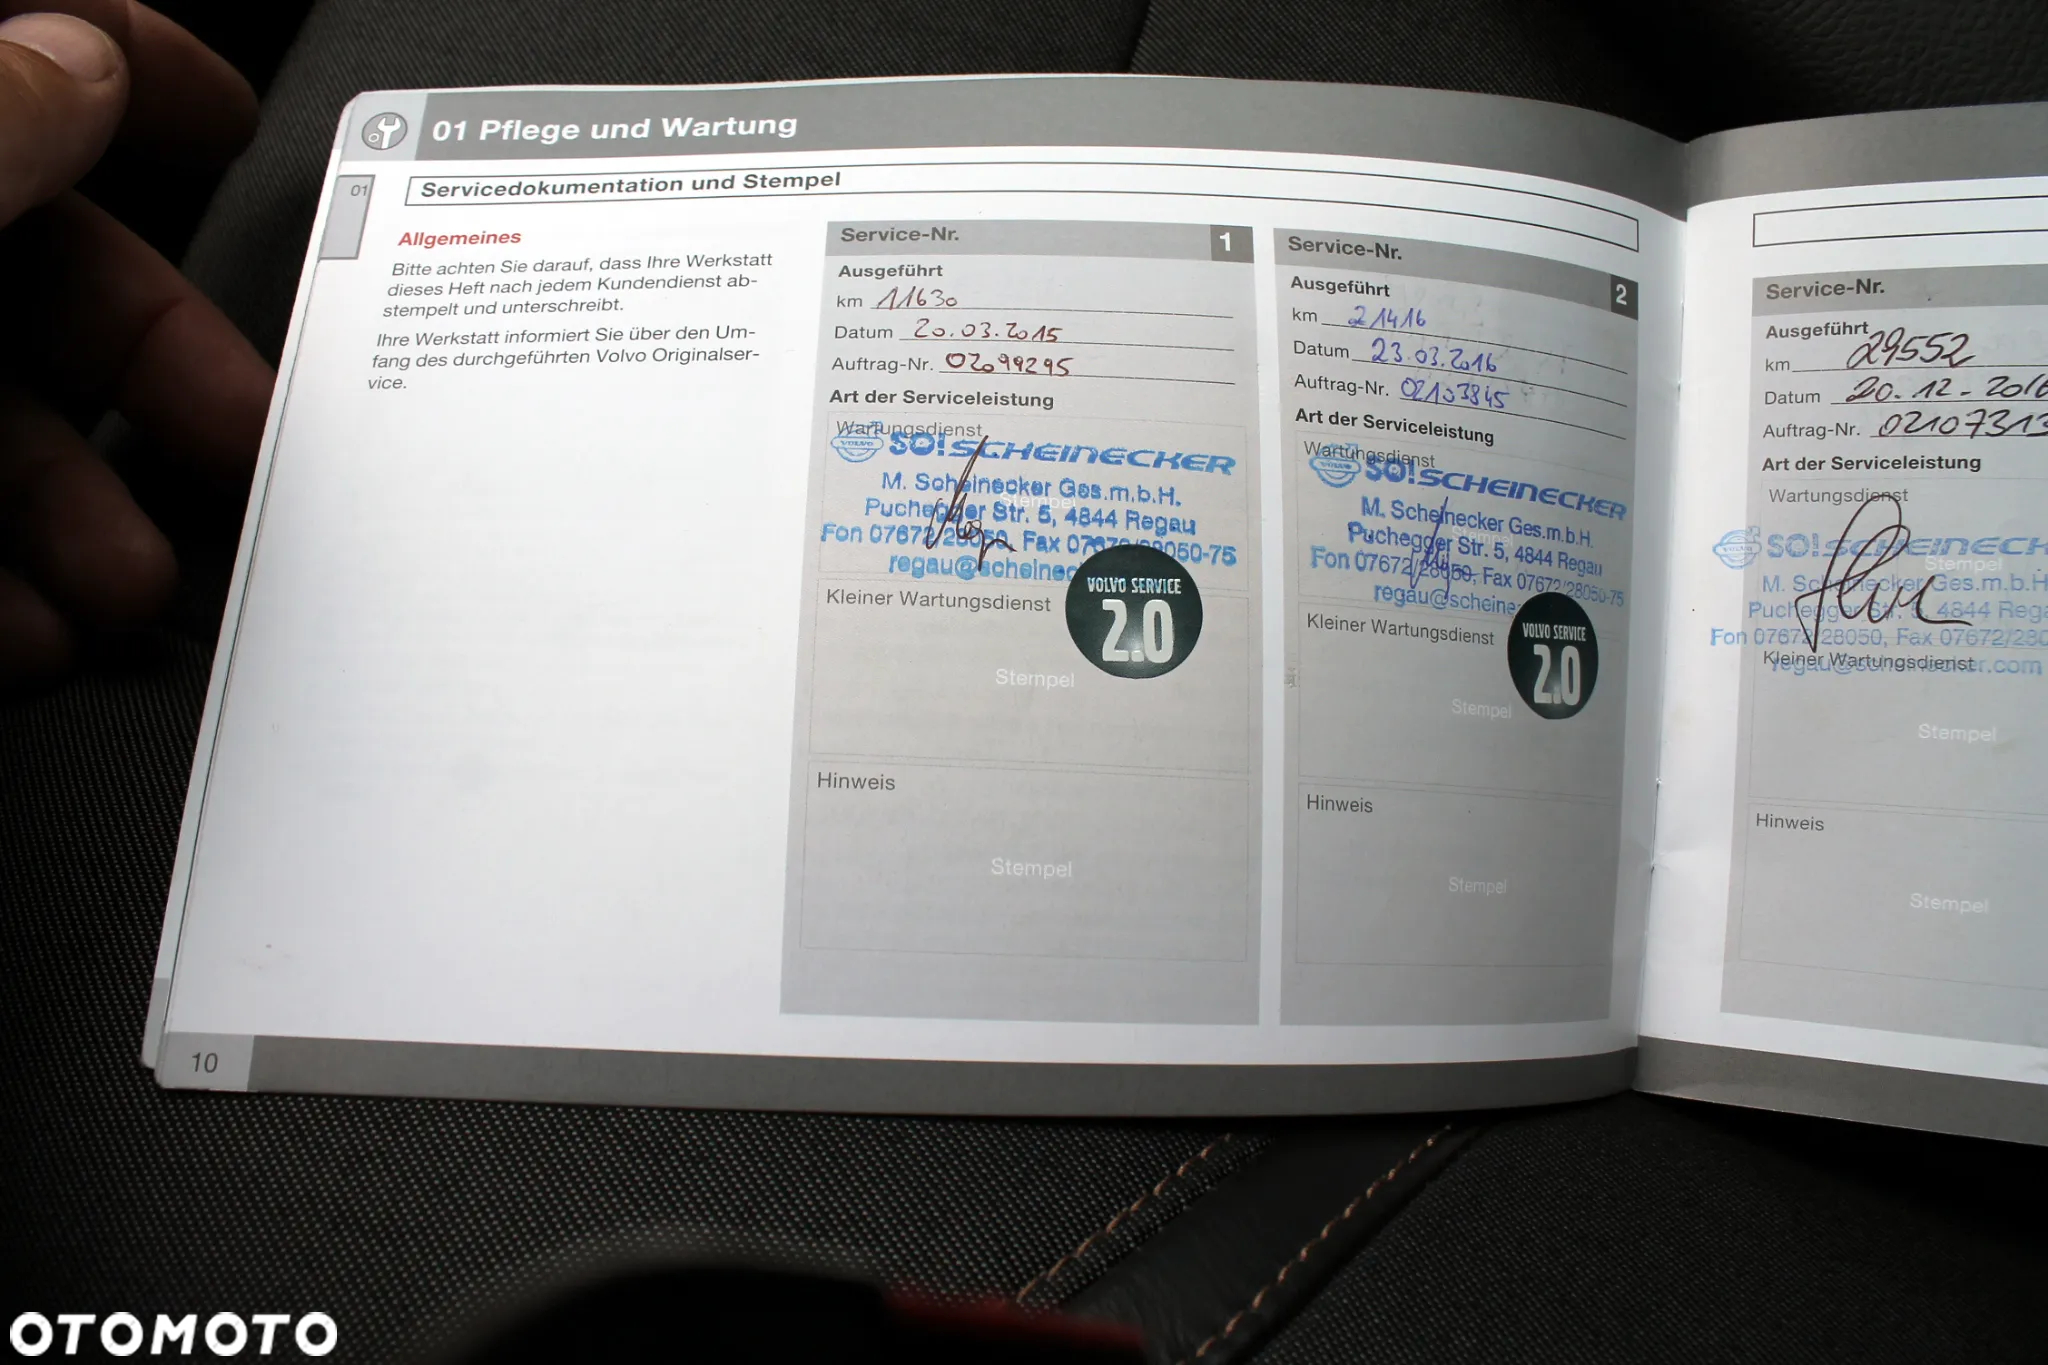 01 Pflege und Wartung
01
Servicedokumentation und Stempel
Allgemeines
Bitte achten Sie darauf, dass Ihre Werkstatt
dieses Heft nach jedem Kundendienst ab-
stempelt und unterschreibt.
Ihre Werkstatt informiert Sie über den Um-
fang des durchgeführten Volvo Originalser-
vice.
Service-Nr. 1
Ausgeführt
km 11630
Datum 20.03.2015
Auftrag-Nr. 02099295
Art der Serviceleistung
Wartungsdienst
VOLVO SO!SCHEINECKER
M. Scheinecker Ges.m.b.H.
Stempel
Puchegger Str. 5, 4844 Regau
Fon 07672/28050, Fax 07672/28050-75
regau@scheinec
VOLVO SERVICE
2.0
Kleiner Wartungsdienst
Stempel
Hinweis
Stempel
Service-Nr. 2
Ausgeführt
km 21416
Datum 23.03.2016
Auftrag-Nr. 02103845
Art der Serviceleistung
Wartungsdienst
VOLVO SO!SCHEINECKER
M. Scheinecker Ges.m.b.H.
Stempel
Puchegger Str. 5, 4844 Regau
Fon 07672/28050, Fax 07672/28050-75
regau@scheine
VOLVO SERVICE
2.0
Kleiner Wartungsdienst
Stempel
Hinweis
Stempel
Service-Nr.
Ausgeführt
km 29552
Datum 20.12-2016
Auftrag-Nr. 02107313
Art der Serviceleistung
Wartungsdienst
VOLVO SO!SCHEINECK
Stempel
M. Scheinecker Ges.m.b.H
Puchegger Str. 5, 4844 Rega
Fon 07672/28050, Fax 07672/280
regau@scheinecker.com
Kleiner Wartungsdienst
Stempel
Hinweis
Stempel
10
OTOMOTO